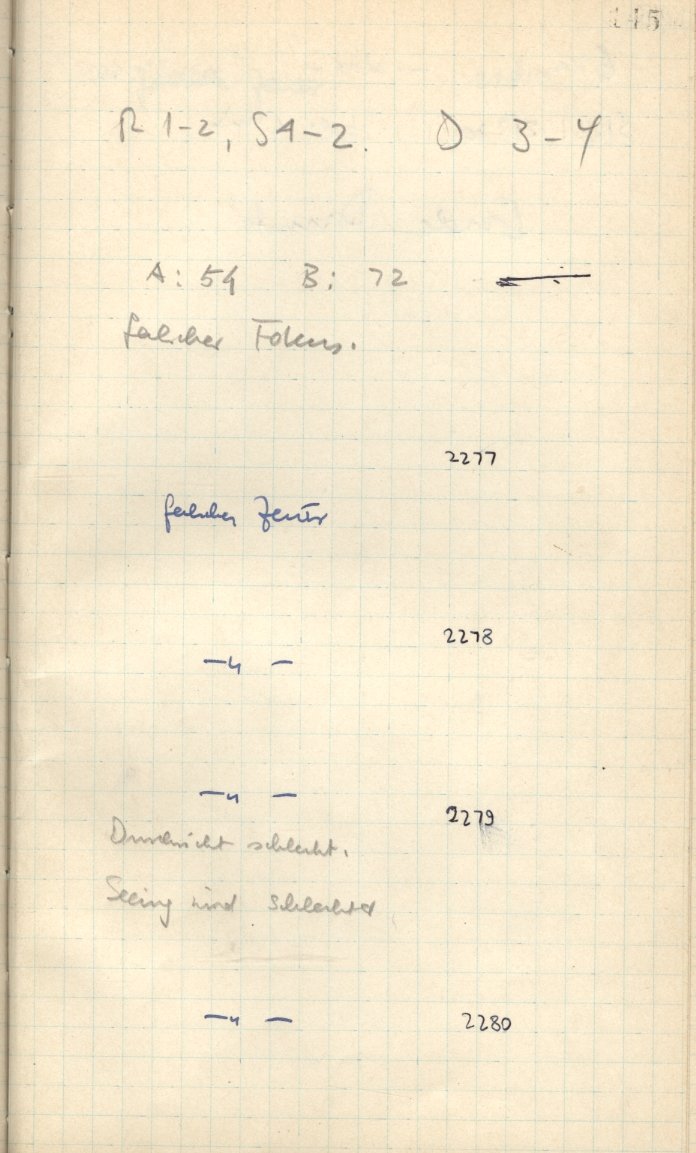 145
R 1-2, S 1-2. D 3-4
A: 54 B: 72
falscher Fokus.
2277
falscher Zentr
2278
—"—
—"—
2279
Durchsicht schlecht.
Seeing wird schlechter
—"— 2280